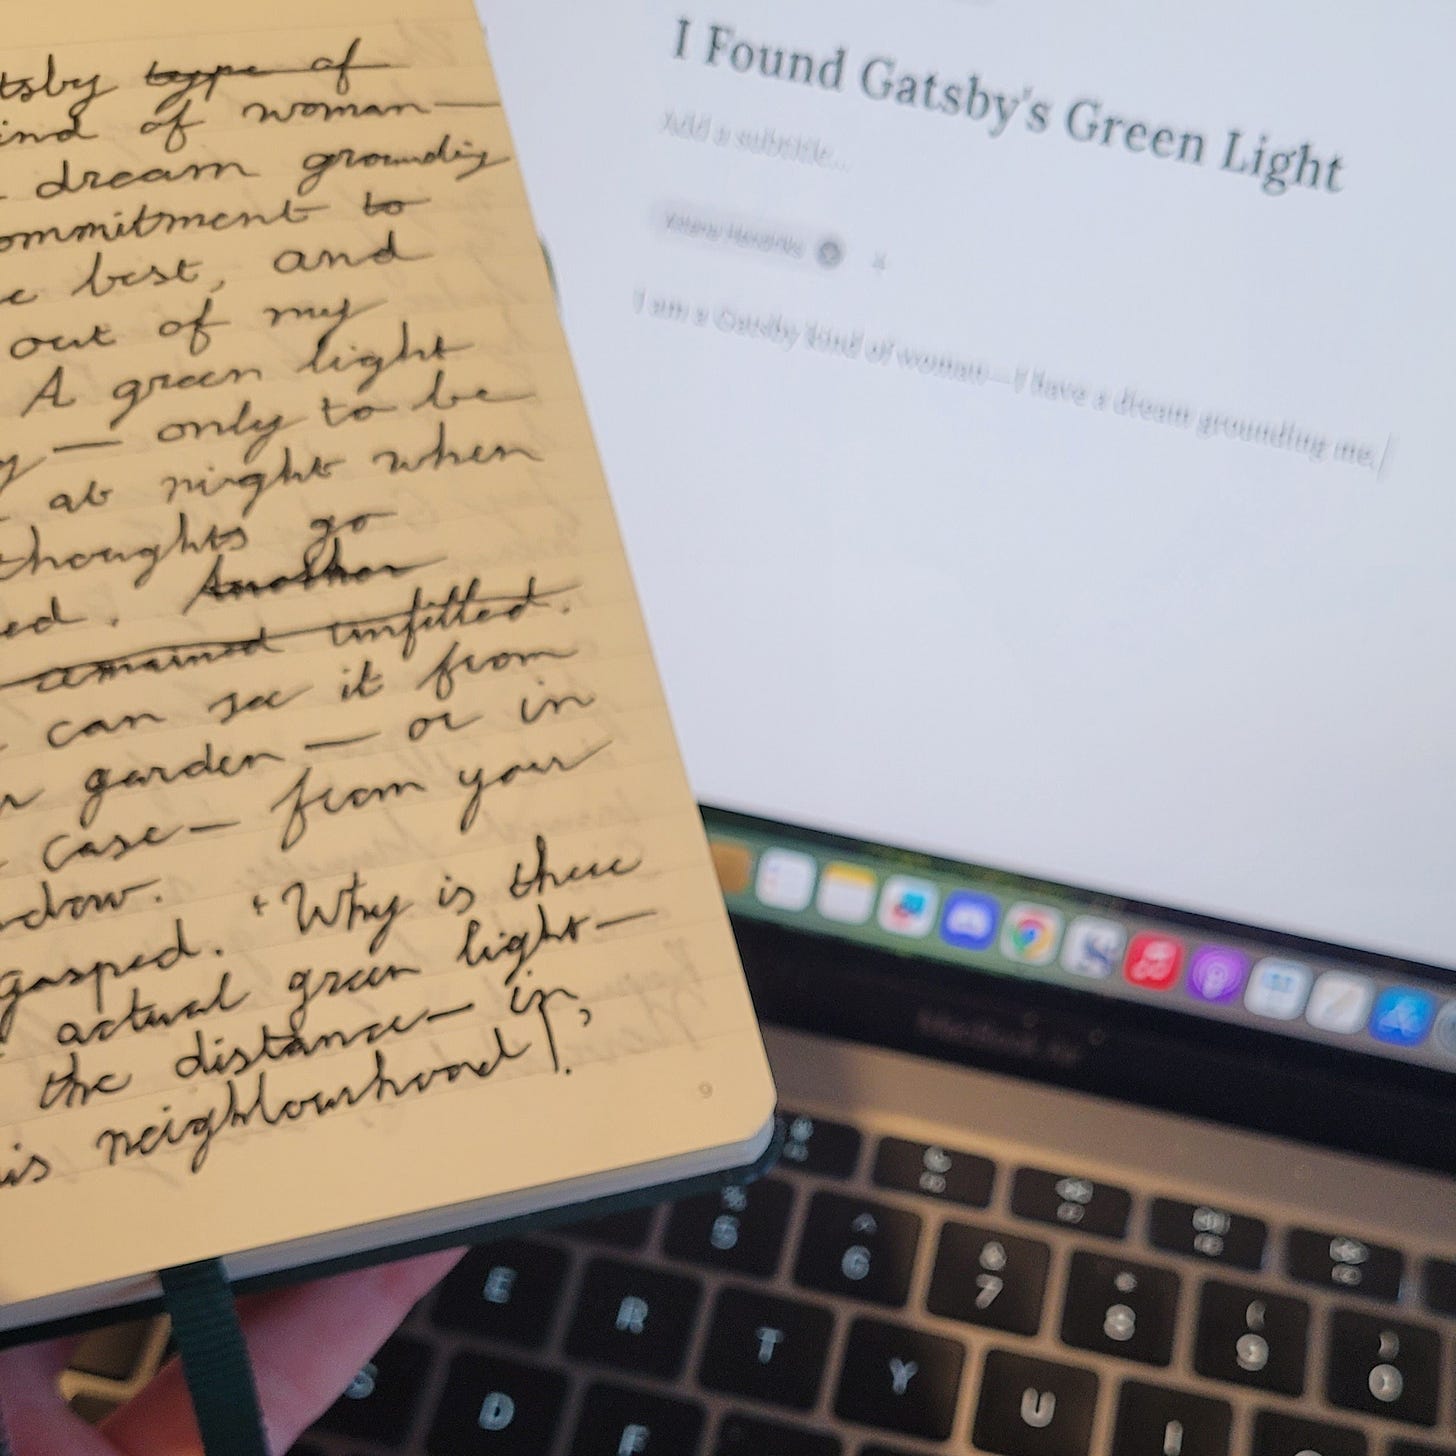 tsby type of
ind of woman—
dream grounding
ommitment to
e best, and
out of my
A green light
y — only to be
at night when
thoughts go
ed. Another
remained unfilled.
can see it from
r garden — or in
case — from your
ndow.
gasped. "Why is there
actual green light —
the distance — in
is neighbourhood!"
9
I Found Gatsby's Green Light
Add a subtitle...
I am a Gatsby kind of woman—I have a dream grounding me.
MacBook Air
% 5
^ 6
& 7
* 8
( 9
) 0
E R T Y U I
S D F